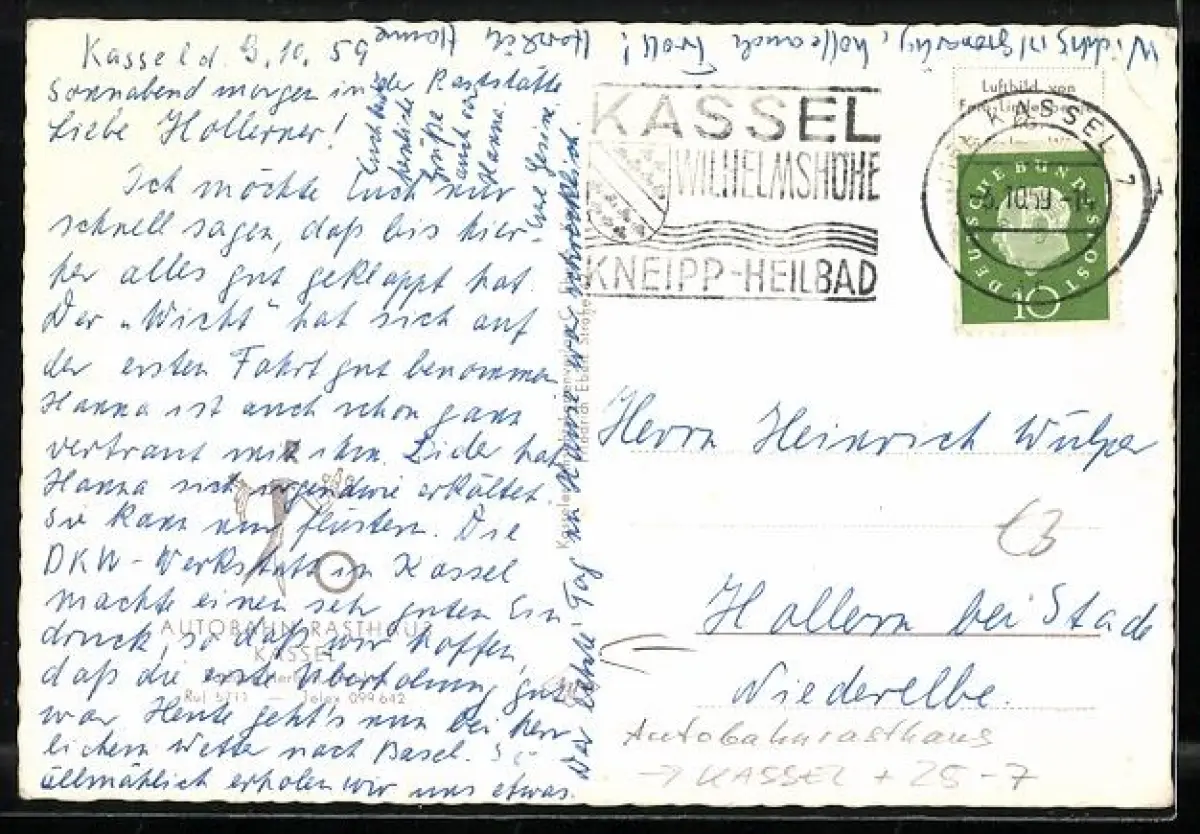 Kassel d. 9.10.59
Sonnabend morgen in der Raststätte
Liebe Hollerner!
Ich möchte Euch nur
schnell sagen, daß bis hier-
her alles gut geklappt hat.
Der „Wicht" hat sich auf
der ersten Fahrt gut benommen
Hanna ist auch schon ganz
vertraut mit ihm. Leider hat
Hanna sich irgendwie erkältet
Sie kann nur flüstern. Die
DKW-Werkstatt in Kassel
machte einen sehr guten Ein
druck, so daß wir hoffen,
daß die erste Überholung gut
war Heute geht's nun bei herr
lichem Wetter nach Basel.
Allmählich erholen wir uns etwas.
Der letzte Tag zu Hause war schrecklich.
Euch allen
herzliche
Grüße
auch von
Hanna.
Eure Gesine.
Herzlich Hanne
AUTOBAHN-RASTHAUS
KASSEL
Ruf 5711 — Telex 099642
Luftbild von
KASSEL
WILHELMSHÖHE
KNEIPP-HEILBAD
KASSEL 7
10.59.-14
DEUTSCHE BUNDESPOST
10
Herrn Heinrich Wülper
Hollern bei Stade
Niederelbe.
€3
Autobahnrasthaus
→ KASSEL + 25-7